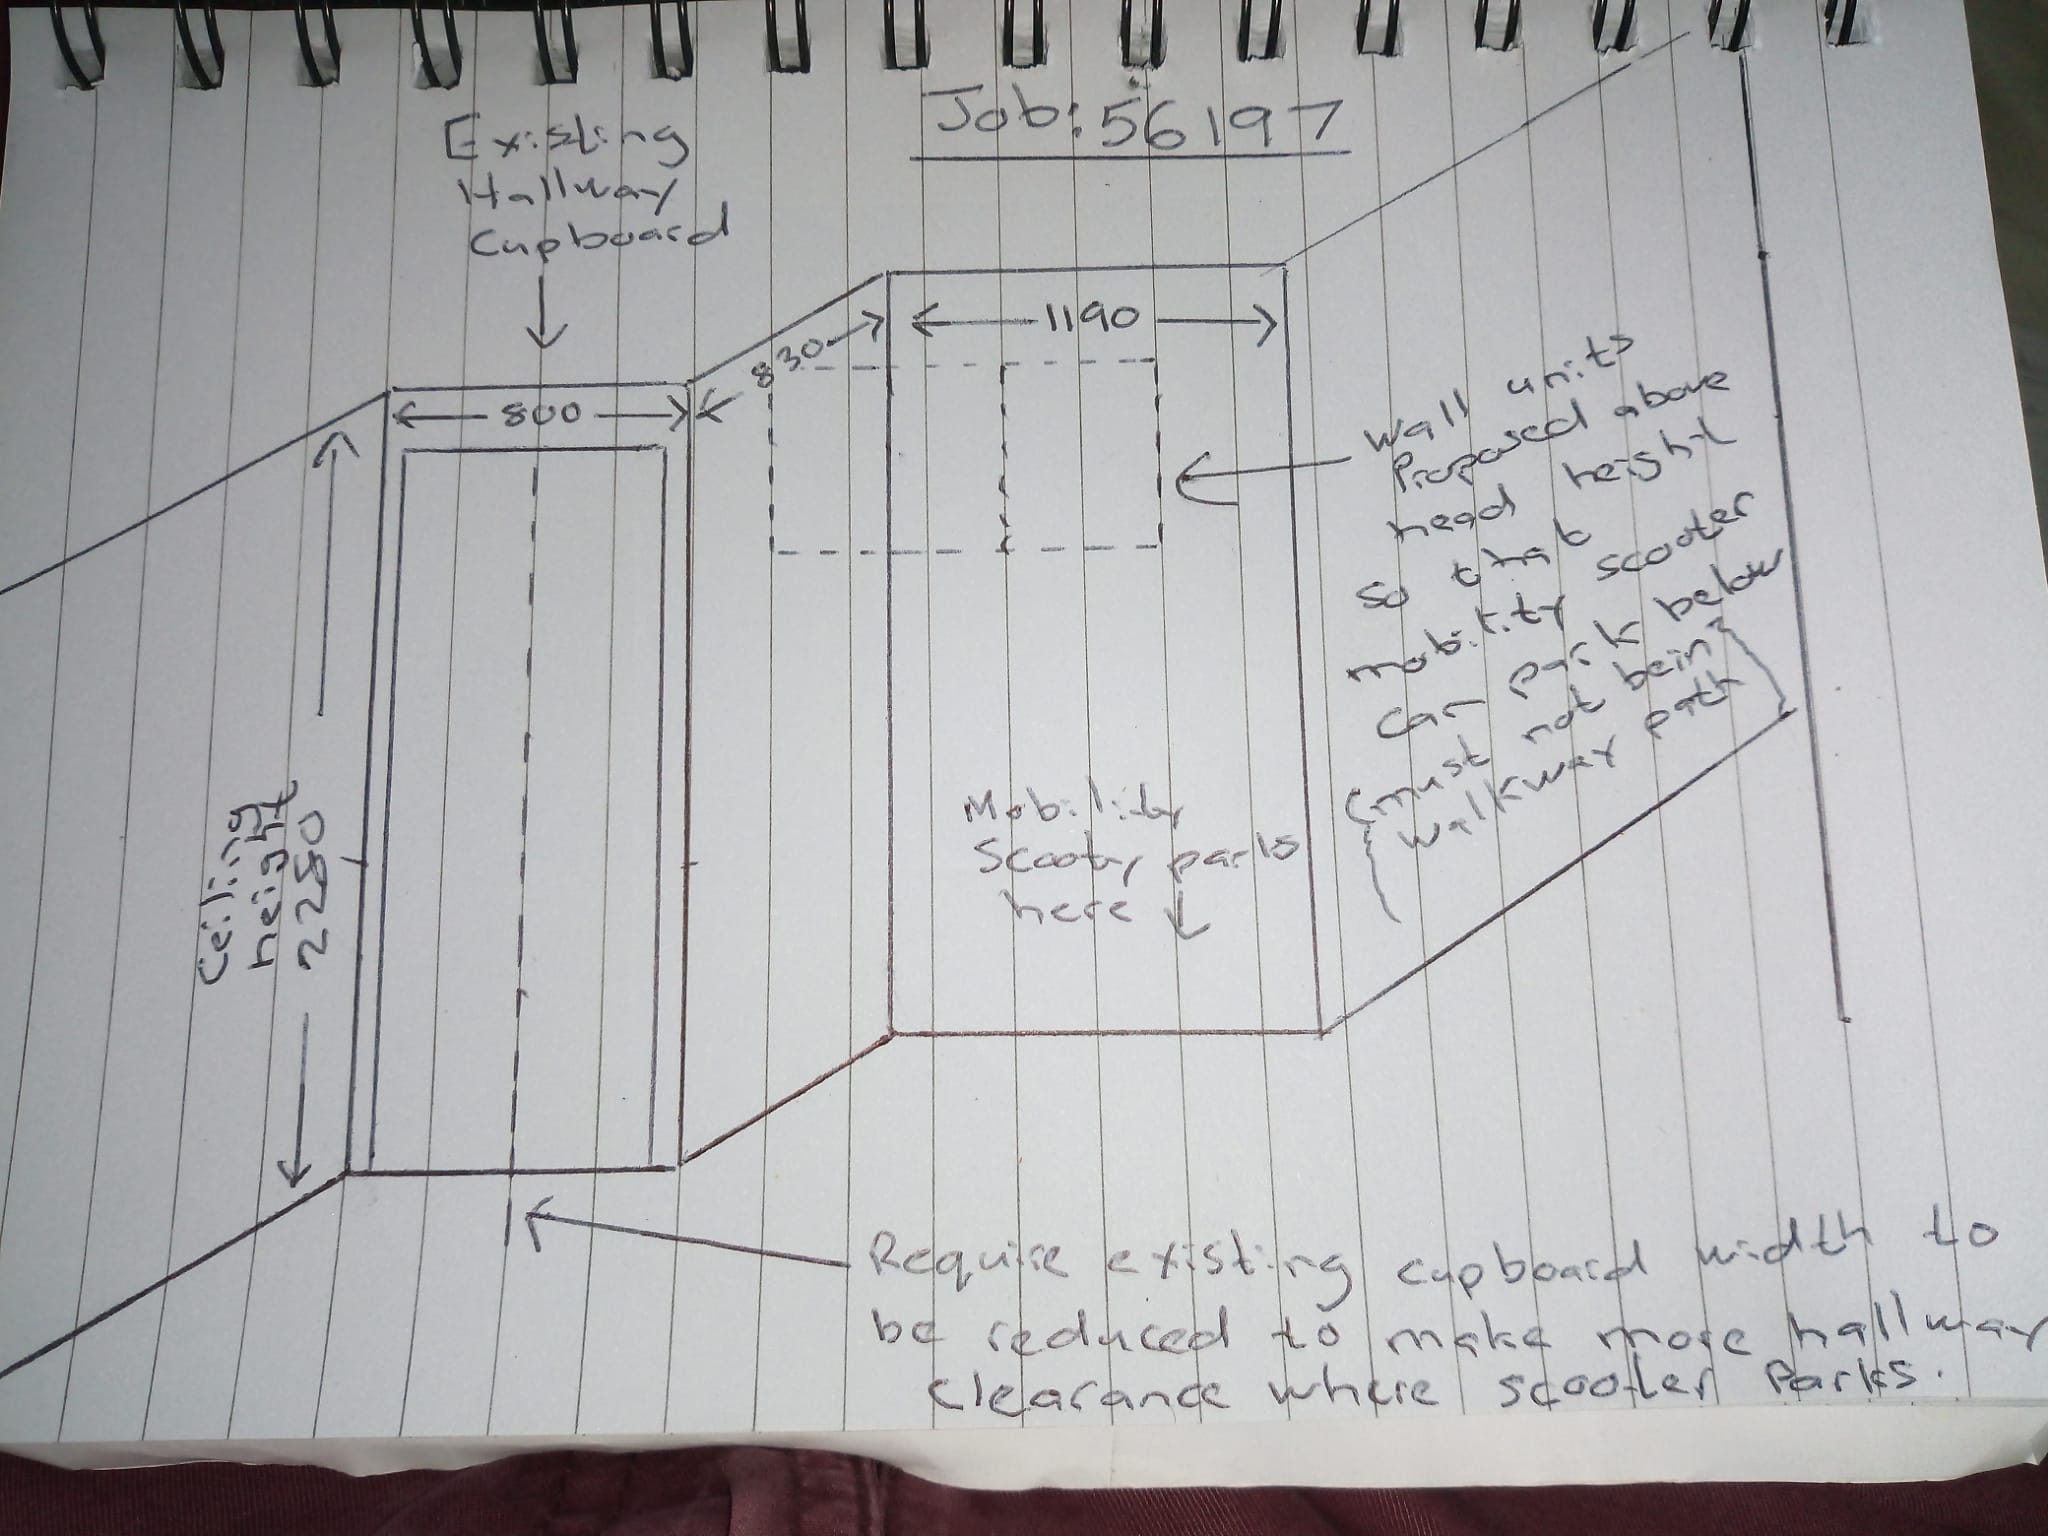 Job: 56197
Existing
Hallway
Cupboard
800
830
1190
Ceiling
height
2280
Wall units
Proposed above
head height
so that
mobility scooter
can park below
(must not be in
walkway path
Mobility
Scooter parks
here
Require existing cupboard width to
be reduced to make more hallway
clearance where scooter Parks.